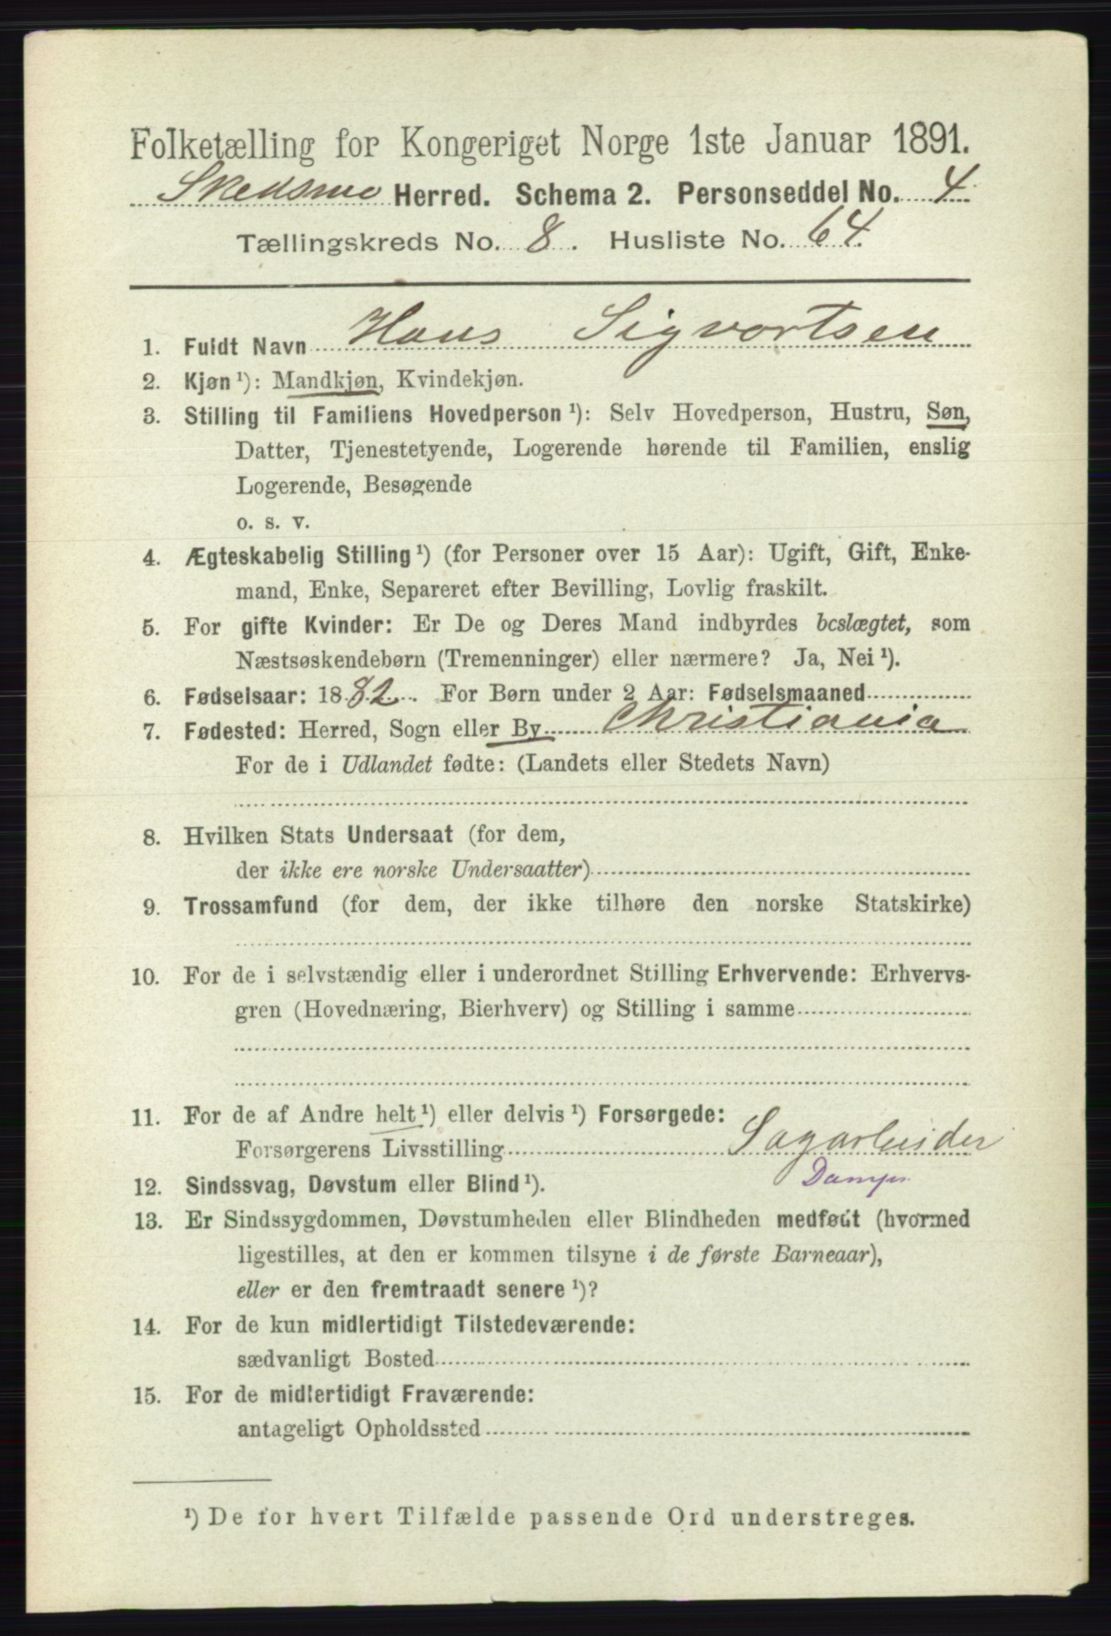 Folketælling for Kongeriget Norge 1ste Januar 1891.
Skedsmo Herred. Schema 2. Personseddel No. 4
Tællingskreds No. 8. Husliste No. 64.
1. Fuldt Navn Hans Sigvortsen
2. Kjøn ¹): Mandkjøn, Kvindekjøn.
3. Stilling til Familiens Hovedperson ¹): Selv Hovedperson, Hustru, Søn,
Datter, Tjenestetyende, Logerende hørende til Familien, enslig
Logerende, Besøgende
o. s. v.
4. Ægteskabelig Stilling ¹) (for Personer over 15 Aar): Ugift, Gift, Enke-
mand, Enke, Separeret efter Bevilling, Lovlig fraskilt.
5. For gifte Kvinder: Er De og Deres Mand indbyrdes beslægtet, som
Næstsøskendebørn (Tremenninger) eller nærmere? Ja, Nei ¹).
6. Fødselsaar: 1882. For Børn under 2 Aar: Fødselsmaaned
7. Fødested: Herred, Sogn eller By Christiania
For de i Udlandet fødte: (Landets eller Stedets Navn)
8. Hvilken Stats Undersaat (for dem,
der ikke ere norske Undersaatter)
9. Trossamfund (for dem, der ikke tilhøre den norske Statskirke)
10. For de i selvstændig eller i underordnet Stilling Erhvervende: Erhvervs-
gren (Hovednæring, Bierhverv) og Stilling i samme
11. For de af Andre helt ¹) eller delvis ¹) Forsørgede:
Forsørgerens Livsstilling Sagarbeider
Damps
12. Sindssvag, Døvstum eller Blind ¹).
13. Er Sindssygdommen, Døvstumheden eller Blindheden medfødt (hvormed
ligestilles, at den er kommen tilsyne i de første Barneaar),
eller er den fremtraadt senere ¹)?
14. For de kun midlertidigt Tilstedeværende:
sædvanligt Bosted
15. For de midlertidigt Fraværende:
antageligt Opholdssted
¹) De for hvert Tilfælde passende Ord understreges.